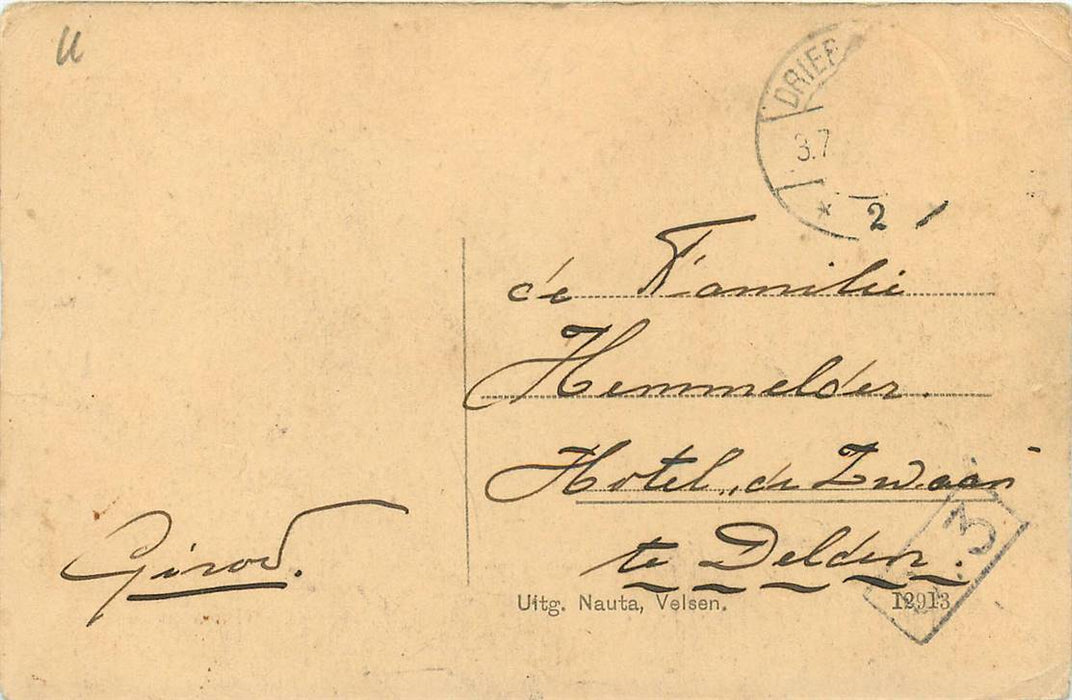 DRIEB
3.7
* 2
de Familie
Hemmelder.
Hotel „de Zwaan"
te Delden.
Girod.
3
Uitg. Nauta, Velsen.
12913